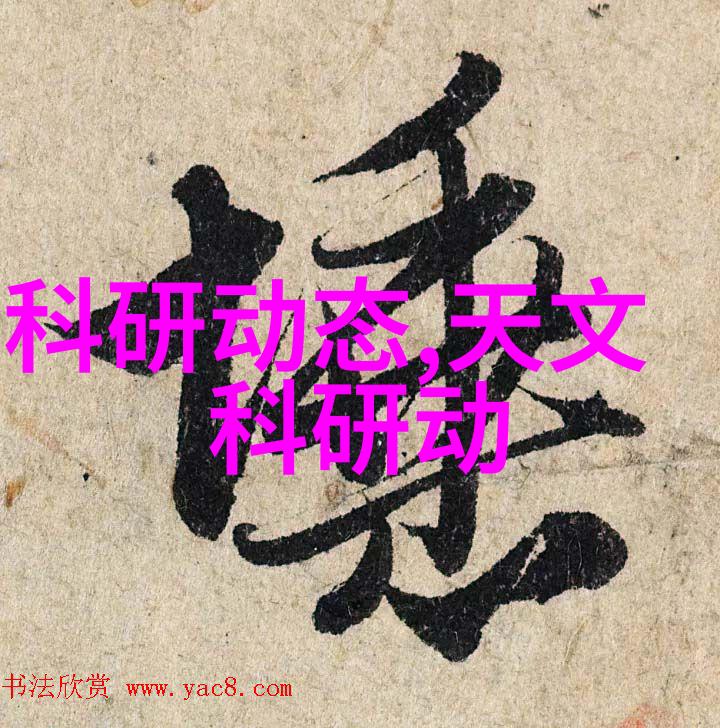 科研动态,天文
科研动
书法欣赏 www.yac8.com